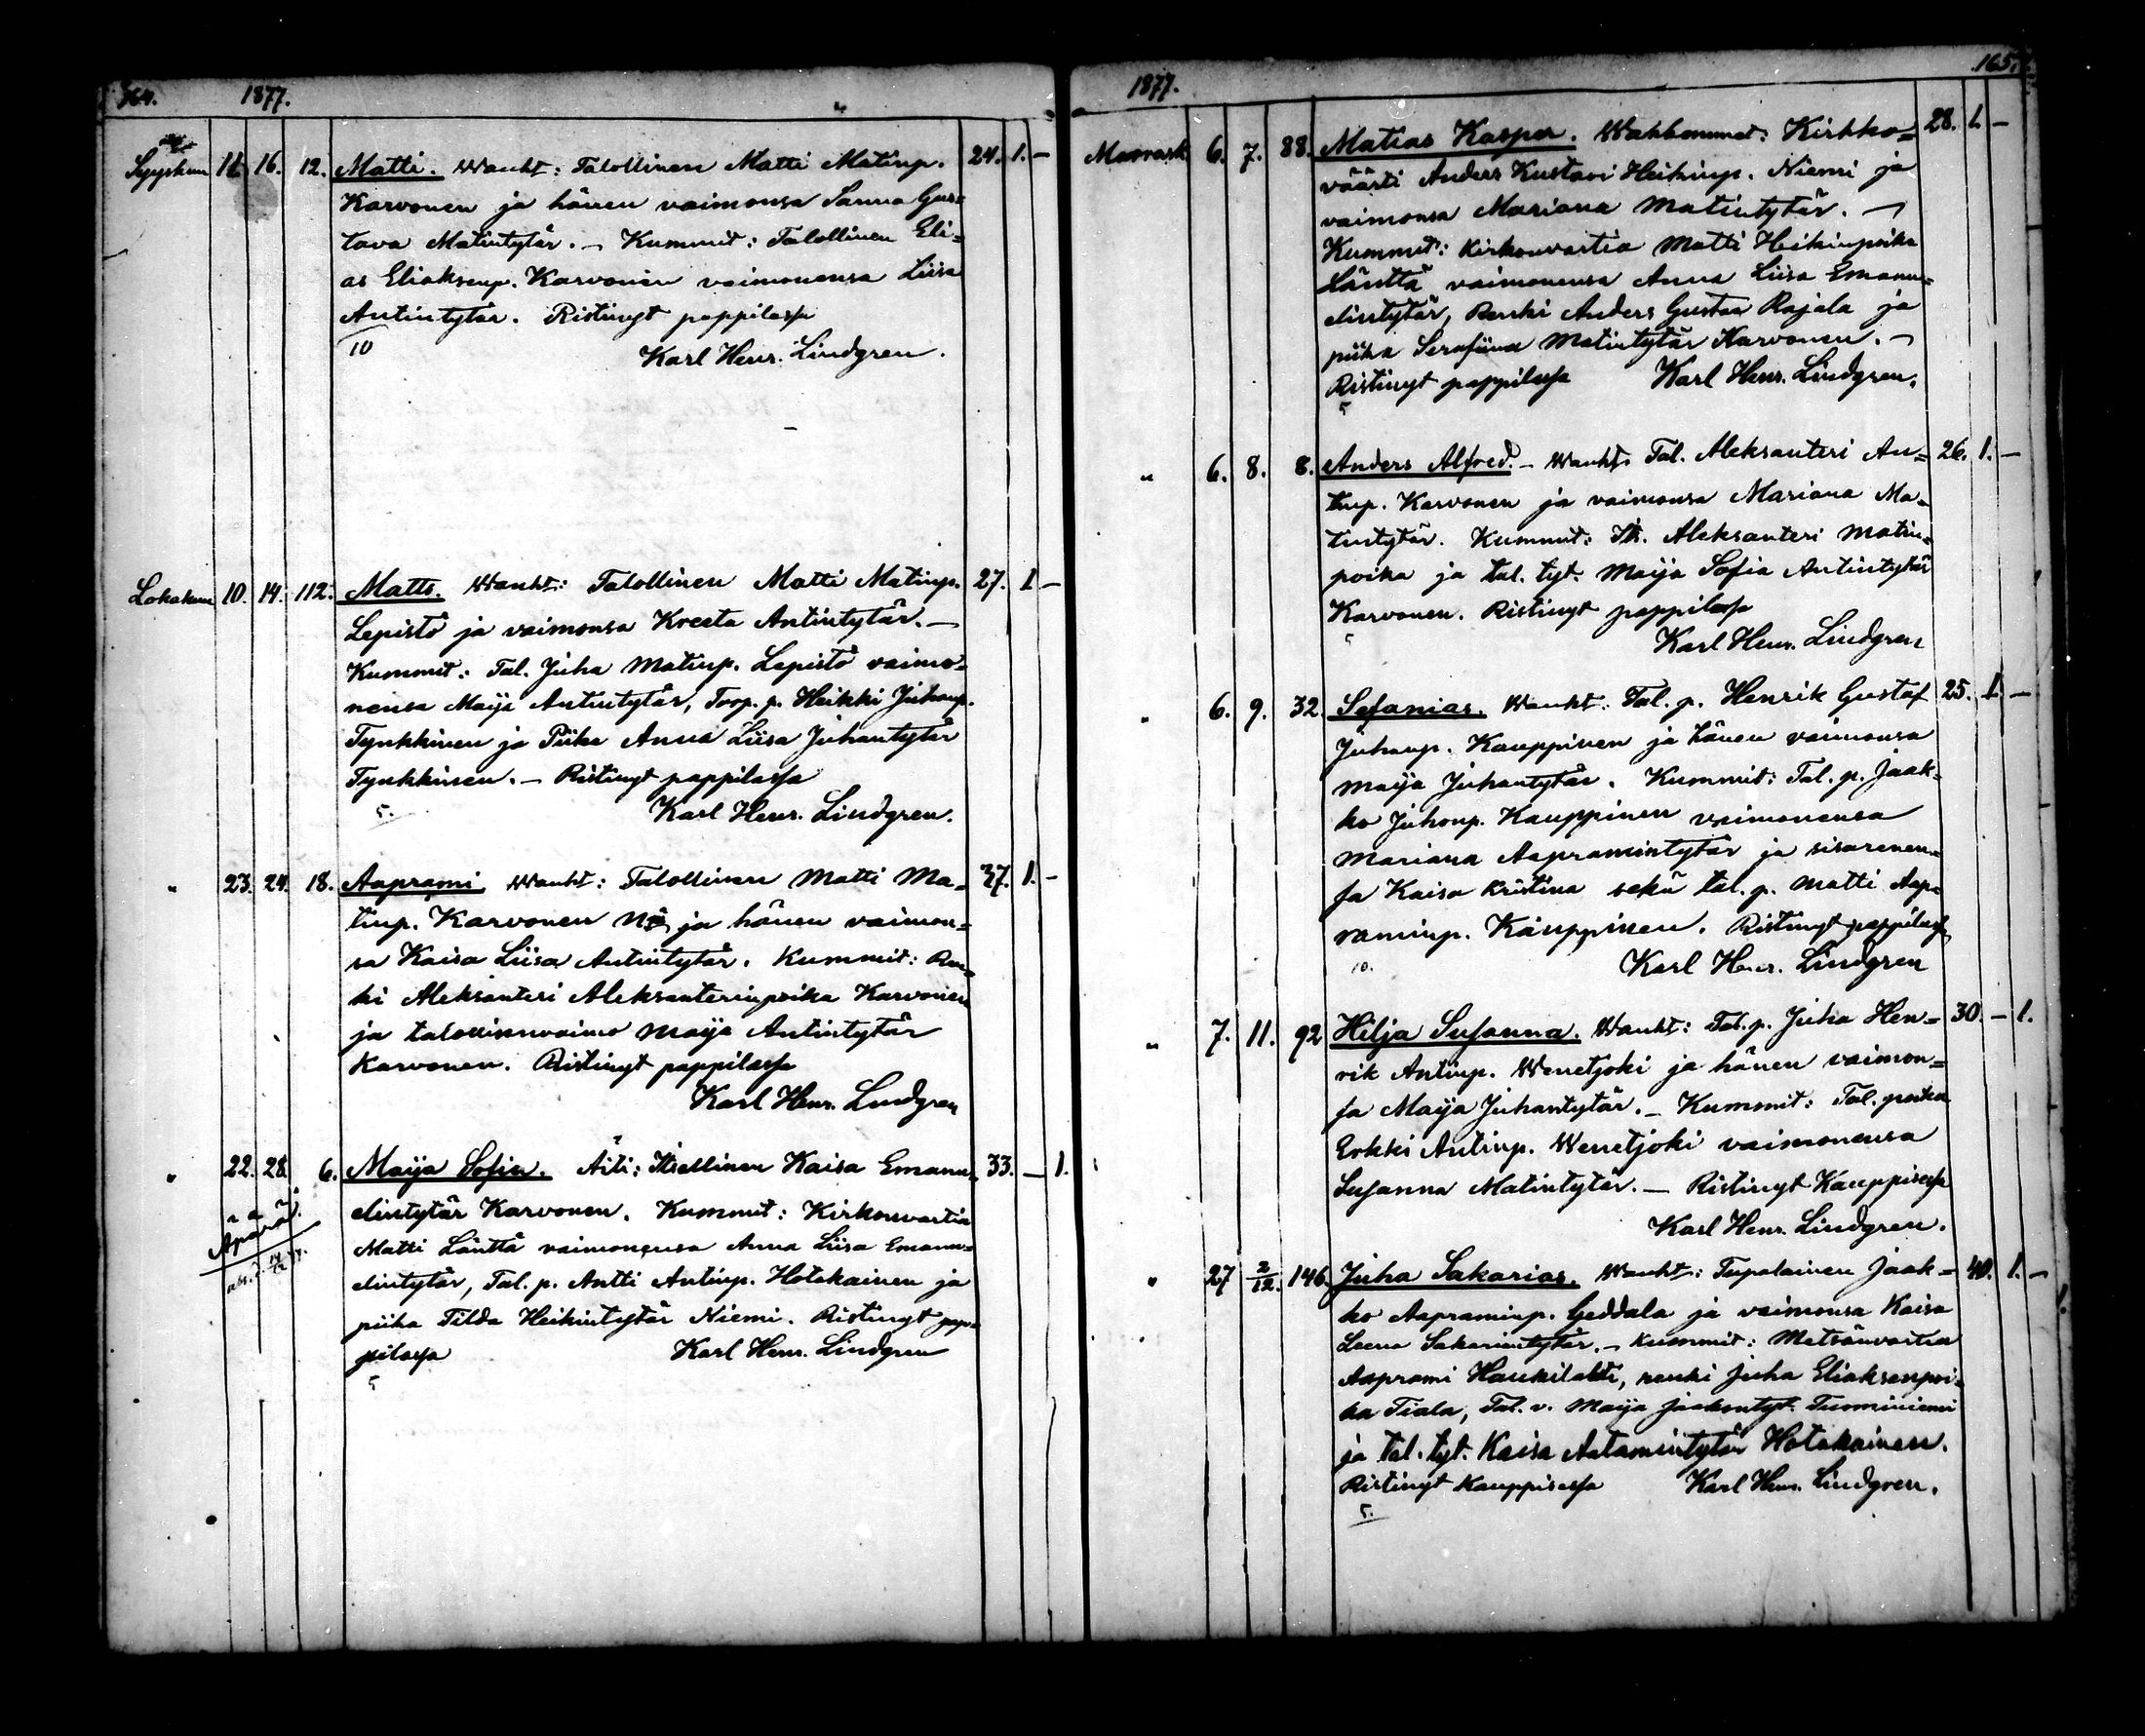 164. 1877.
Syyskuu 11. 16. 12. Matti. Wanht: Talollinen Matti Matinp. 24. 1. —
Karvonen ja hänen vaimonsa Sanna Gus=
tava Matintytär. — Kummit: Talollinen Eli=
as Eliaksenp. Karvonen vaimonensa Liisa
Antintytär. Ristinyt pappilassa
10 Karl Henr. Lindgren.
Lokakuu 10. 14. 112. Matts. Wanht: Talollinen Matti Matinp. 27. 1 —
Lepistö ja vaimonsa Kreeta Antintytär. —
Kummit: Tal. Juha Matinp. Lepistö vaimo=
nensa Maija Antintytär, Torp. p. Heikki Juhanp.
Tynkkinen ja Piika Anna Liisa Juhantytär
Tynkkinen. — Ristinyt pappilassa
5. Karl Henr. Lindgren.
" 23. 24. 18. Aaprami Wanht: Talollinen Matti Ma= 37. 1. —
tinp. Karvonen ja hänen vaimon=
sa Kaisa Liisa Antintytär. Kummit: Ren=
ki Aleksanteri Aleksanterinpoika Karvonen
ja talollisenvaimo Maija Antintytär
Karvonen. Ristinyt pappilassa
Karl Henr. Lindgren
" 22. 28. 6. Maija Sofia. Äiti: Itsellinen Kaisa Emanu= 33. — 1.
elintytär Karvonen. Kummit: Kirkonvartia
Äpärä.
Matti Länttä vaimonensa Anna Liisa Emanu=
elintytär, Tal. p. Antti Antinp. Hotakainen ja
piika Tilda Heikintytär Niemi. Ristinyt pap=
pilassa Karl Henr. Lindgren
5
1877. 165.
Marrask. 6. 7. 88. Matias Kasper. Wanhemmat: Kirkko= 28. 1. —
väärti Anders Kustavi Heikinp. Niemi ja
vaimonsa Mariana Matintytär. —
Kummit: Kirkonvartia Matti Heikinpoika
Länttä vaimonensa Anna Liisa Emanu=
elintytär, Renki Anders Gustav Rajala ja
piika Serafiina Matintytär Karvonen. —
Ristinyt pappilassa Karl Henr. Lindgren.
5
" 6. 8. 8. Anders Alfred. — Wanht. Tal. Aleksanteri An= 26. 1. —
tinp. Karvonen ja vaimonsa Mariana Ma=
tintytär. Kummit: Aleksanteri Matin=
poika ja tal. tyt. Maija Sofia Antintytär
Karvonen. Ristinyt pappilassa
5 Karl Henr. Lindgren
" 6. 9. 32. Sefanias. Wanht: Tal. p. Henrik Gustaf 25. 1. —
Juhanp. Kauppinen ja hänen vaimonsa
Maija Juhantytär. Kummit: Tal. p. Jaak=
ko Juhanp. Kauppinen vaimonensa
Mariana Aapramintytär ja sisarenen=
sa Kaisa Kristina sekä tal. p. Matti Aap=
raminp. Kauppinen. Ristinyt pappilassa
10. Karl Henr. Lindgren
" 7. 11. 92 Hilja Susanna. Wanht: Tal. p. Juha Hen= 30. — 1.
rik Antinp. Wenetjoki ja hänen vaimon=
sa Maija Juhantytär. — Kummit: Tal. poika
Erkki Antinp. Wenetjoki vaimonensa
Susanna Matintytär. — Ristinyt Kauppisessa
Karl Henr. Lindgren.
" 27 2/12. 146. Juha Sakarias. Wanht: Tupalainen Jaak= 40. 1. —
ko Aapraminp. Geddala ja vaimonsa Kaisa
Leena Sakarintytär. — Kummit: Metsänvartia
Aaprami Haukilahti, renki Juha Eliaksenpoi=
ka Tiala, Tal. v. Maija Jaakontyt. Tuominiemi
ja tal. tyt. Kaisa Aatamintytär Hotakainen.
Ristinyt Kauppisessa Karl Henr. Lindgren.
5.